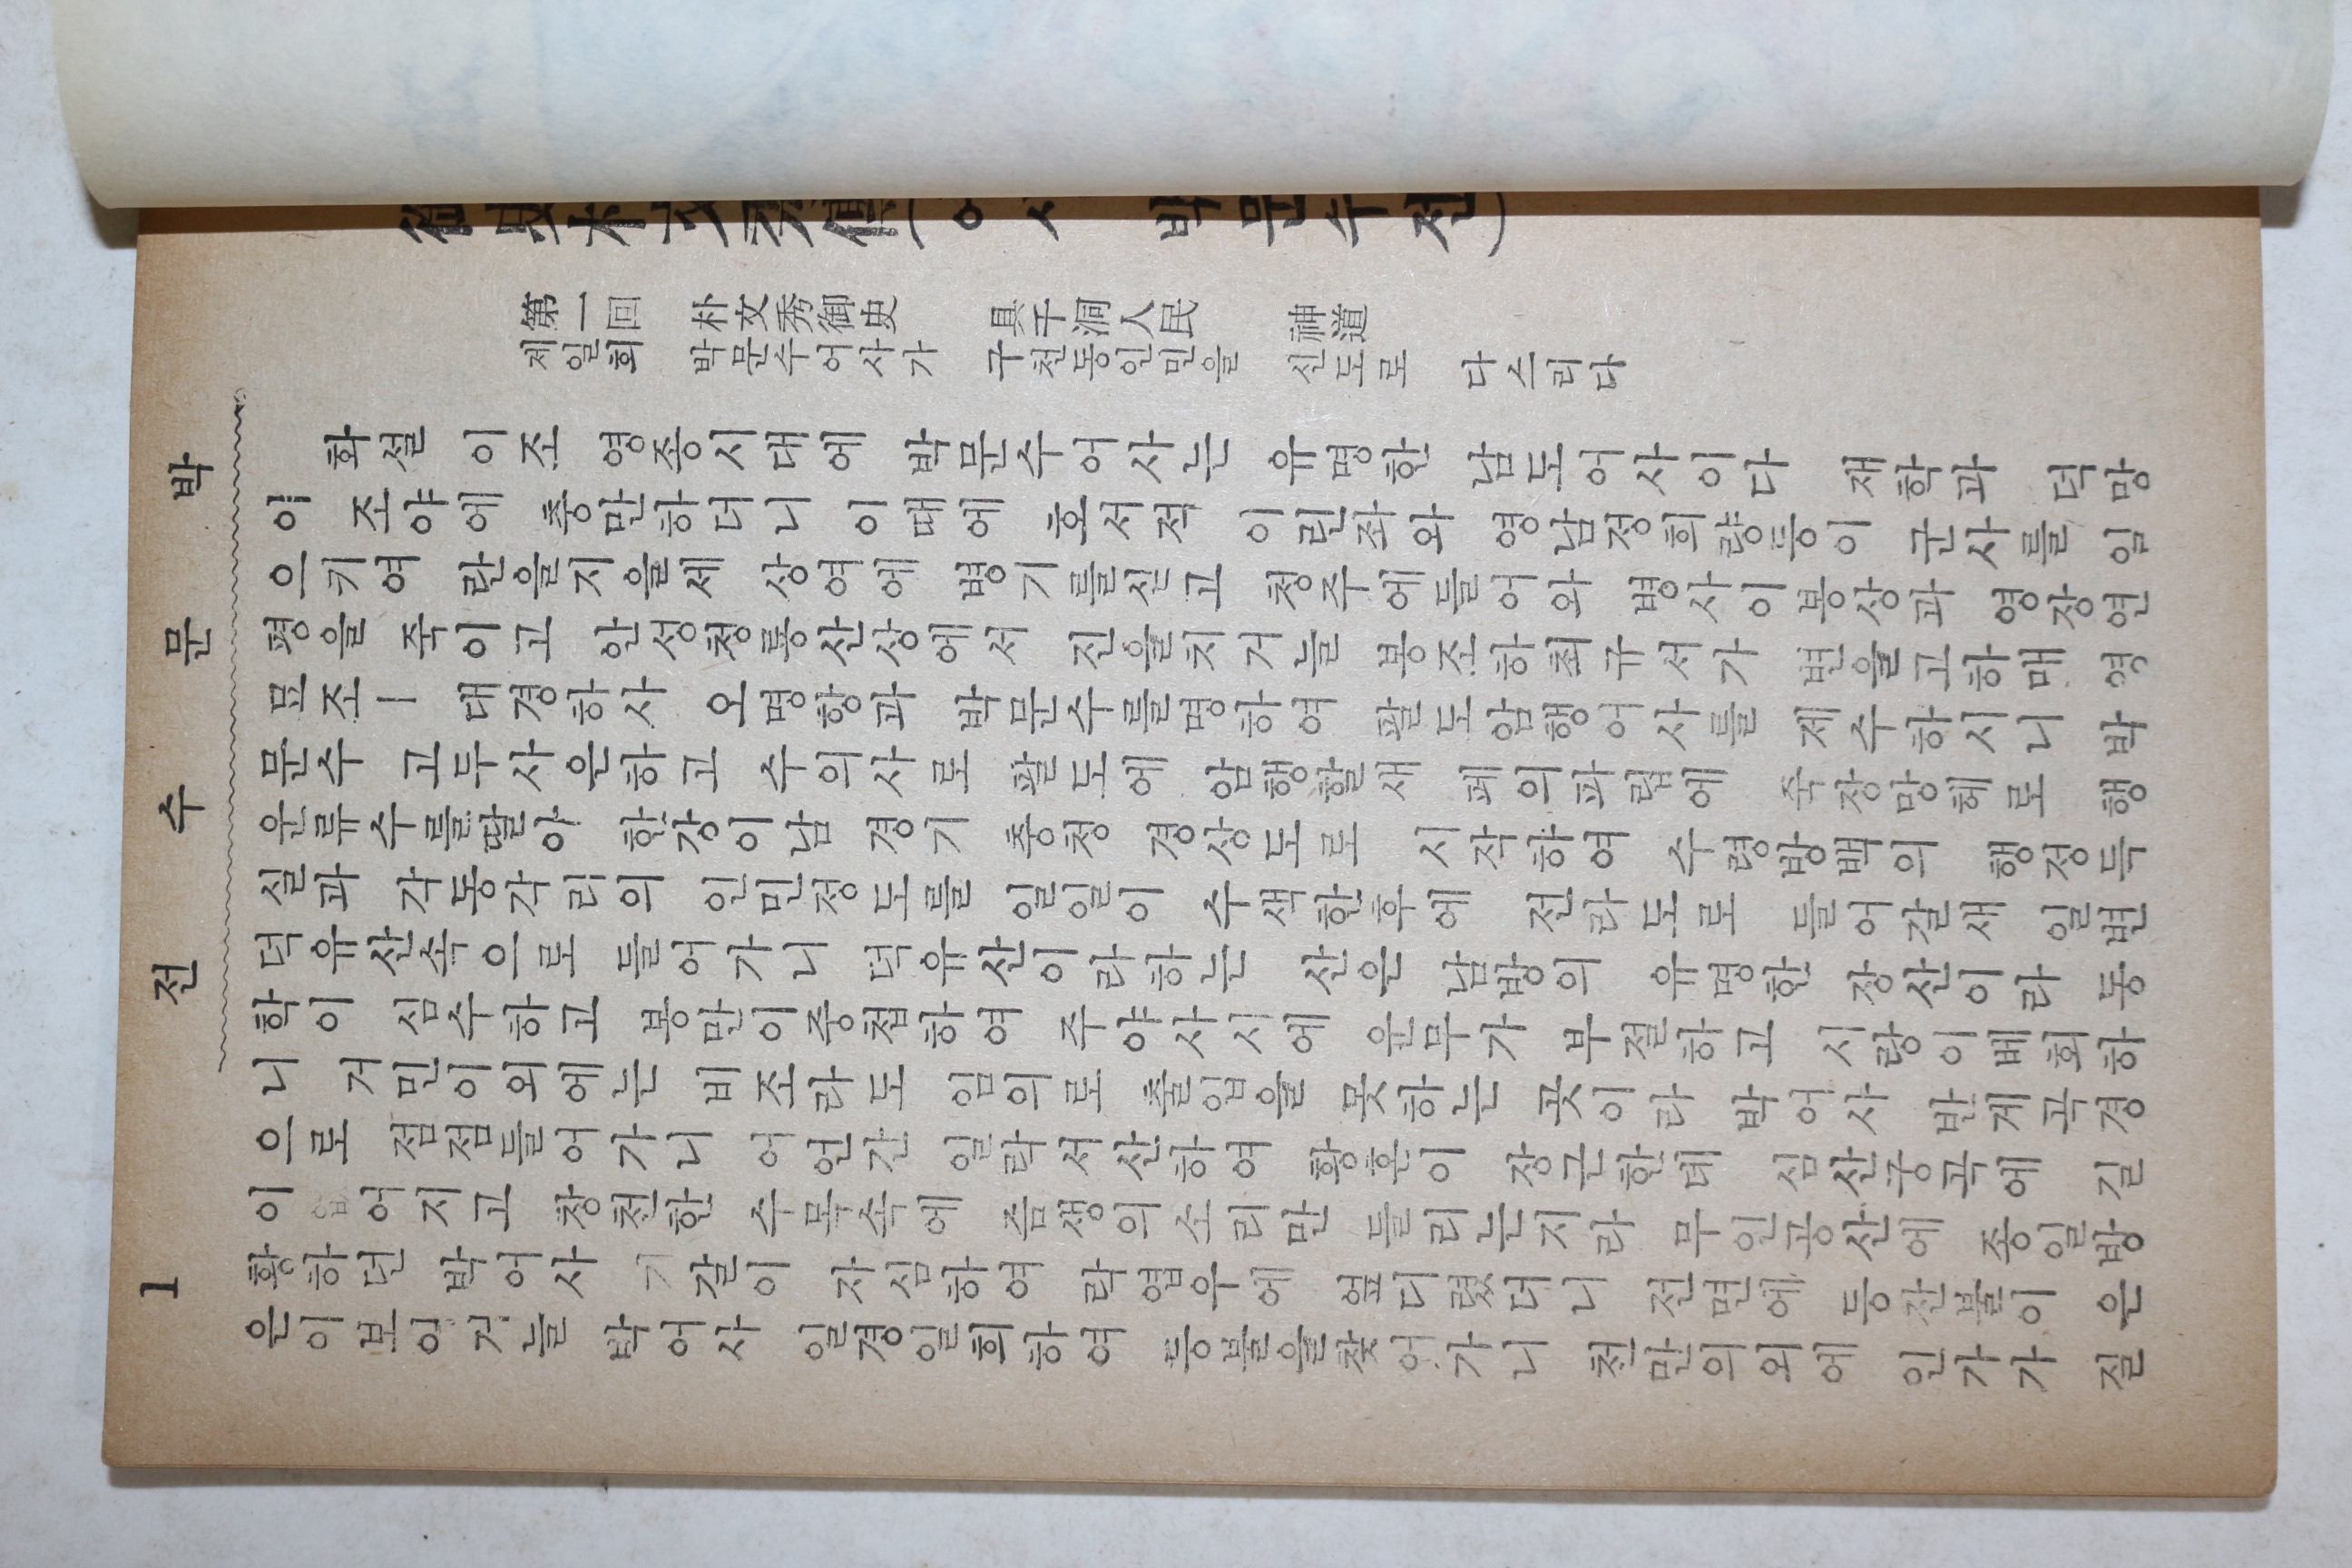 박문수전
1
御史朴文秀傳(어사 박문수전)
第一回 朴文秀御史 具千洞人民 神道
제일회 박문수어사가 구천동인민을 신도로 다스리다
화설 이조 영종시대에 박문수어사는 유명한 남도어사이다 재학과 덕망
이 조야에 충만하더니 이때에 호서적 이린좌와 영남정희량등이 군사를 일
으키여 란을지을세 상여에 병기를싣고 청주에들어와 병사이봉상과 영장연
평을 죽이고 안성청룡산상에서 진을치거늘 봉조하최규서가 변을고하매 영
묘조ㅣ 대경하사 오명항과 박문수를명하여 팔도암행어사를 제수하시니 박
문수 고두사은하고 수의사로 팔도에 암행할새 페의파립에 죽장망헤로 행
운류수를딸아 한강이남 경기 충청 경상도로 시작하여 수령방백의 행정득
실과 각동각리의 인민정도를 일일이 수색한후에 전라도로 들어갈새 일변
덕유산속으로 들어가니 덕유산이라하는 산은 남방의 유명한 장산이라 동
학이 심수하고 봉만이중첩하여 주야사시에 운무가 부절하고 시랑이베회하
니 거민이외에는 비조라도 임의로 출입을 못하는 곳이라 박어사 반계곡경
으로 점점들어가니 어언간 일락서산하여 황혼이 장근한데 심산궁곡에 길
이 없어지고 창천한 수목속에 즘생의소리만 들리는지라 무인공산에 종일방
황하던 박어사 기갈이 자심하여 락엽우에 엎디렸더니 전면에 등잔불이 은
은이보이거늘 박어사 일경일희하여 등불을찾어가니 천만의외에 인가가 질